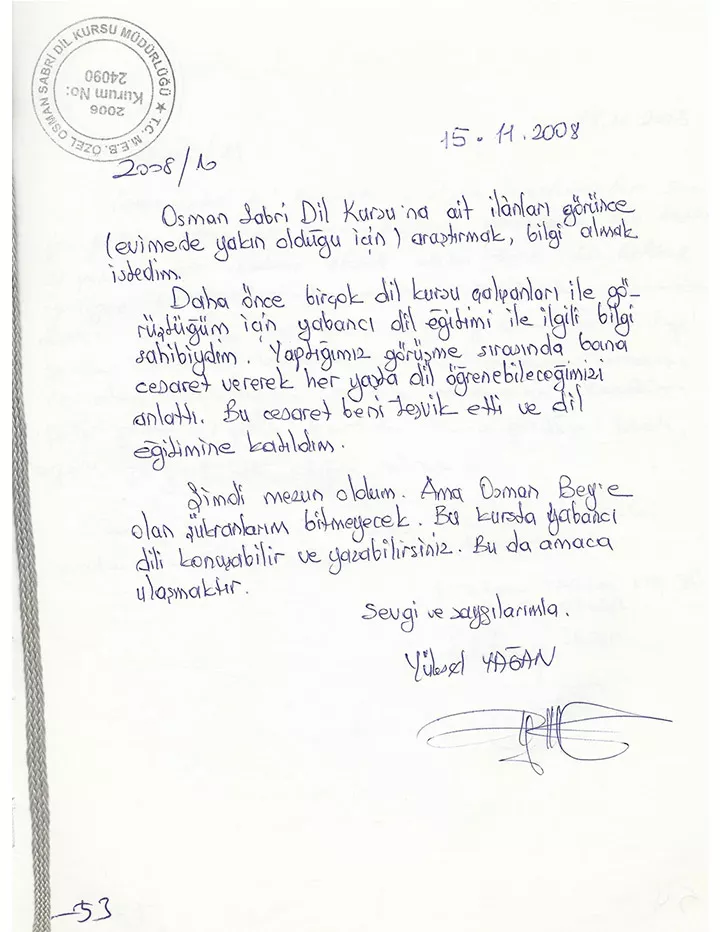 T.C. M.E.B. ÖZEL OSMAN SABRİ DİL KURSU MÜDÜRLÜĞÜ ★
2006
Kurum No:
24090
15.11.2008
2008/10
Osman Sabri Dil Kursu'na ait ilânları görünce
(evimede yakın olduğu için) araştırmak, bilgi almak
istedim.
Daha önce birçok dil kursu çalışanları ile gö-
rüştüğüm için yabancı dil eğitimi ile ilgili bilgi
sahibiydim. Yaptığımız görüşme sırasında bana
cesaret vererek her yaşta dil öğrenebileceğimizi
anlattı. Bu cesaret beni teşvik etti ve dil
eğitimine katıldım.
Şimdi mezun oldum. Ama Osman Bey'e
olan şükranlarım bitmeyecek. Bu kursta yabancı
dili konuşabilir ve yazabilirsiniz. Bu da amaca
ulaşmaktır.
Sevgi ve saygılarımla.
Yüksel YAĞAN
53